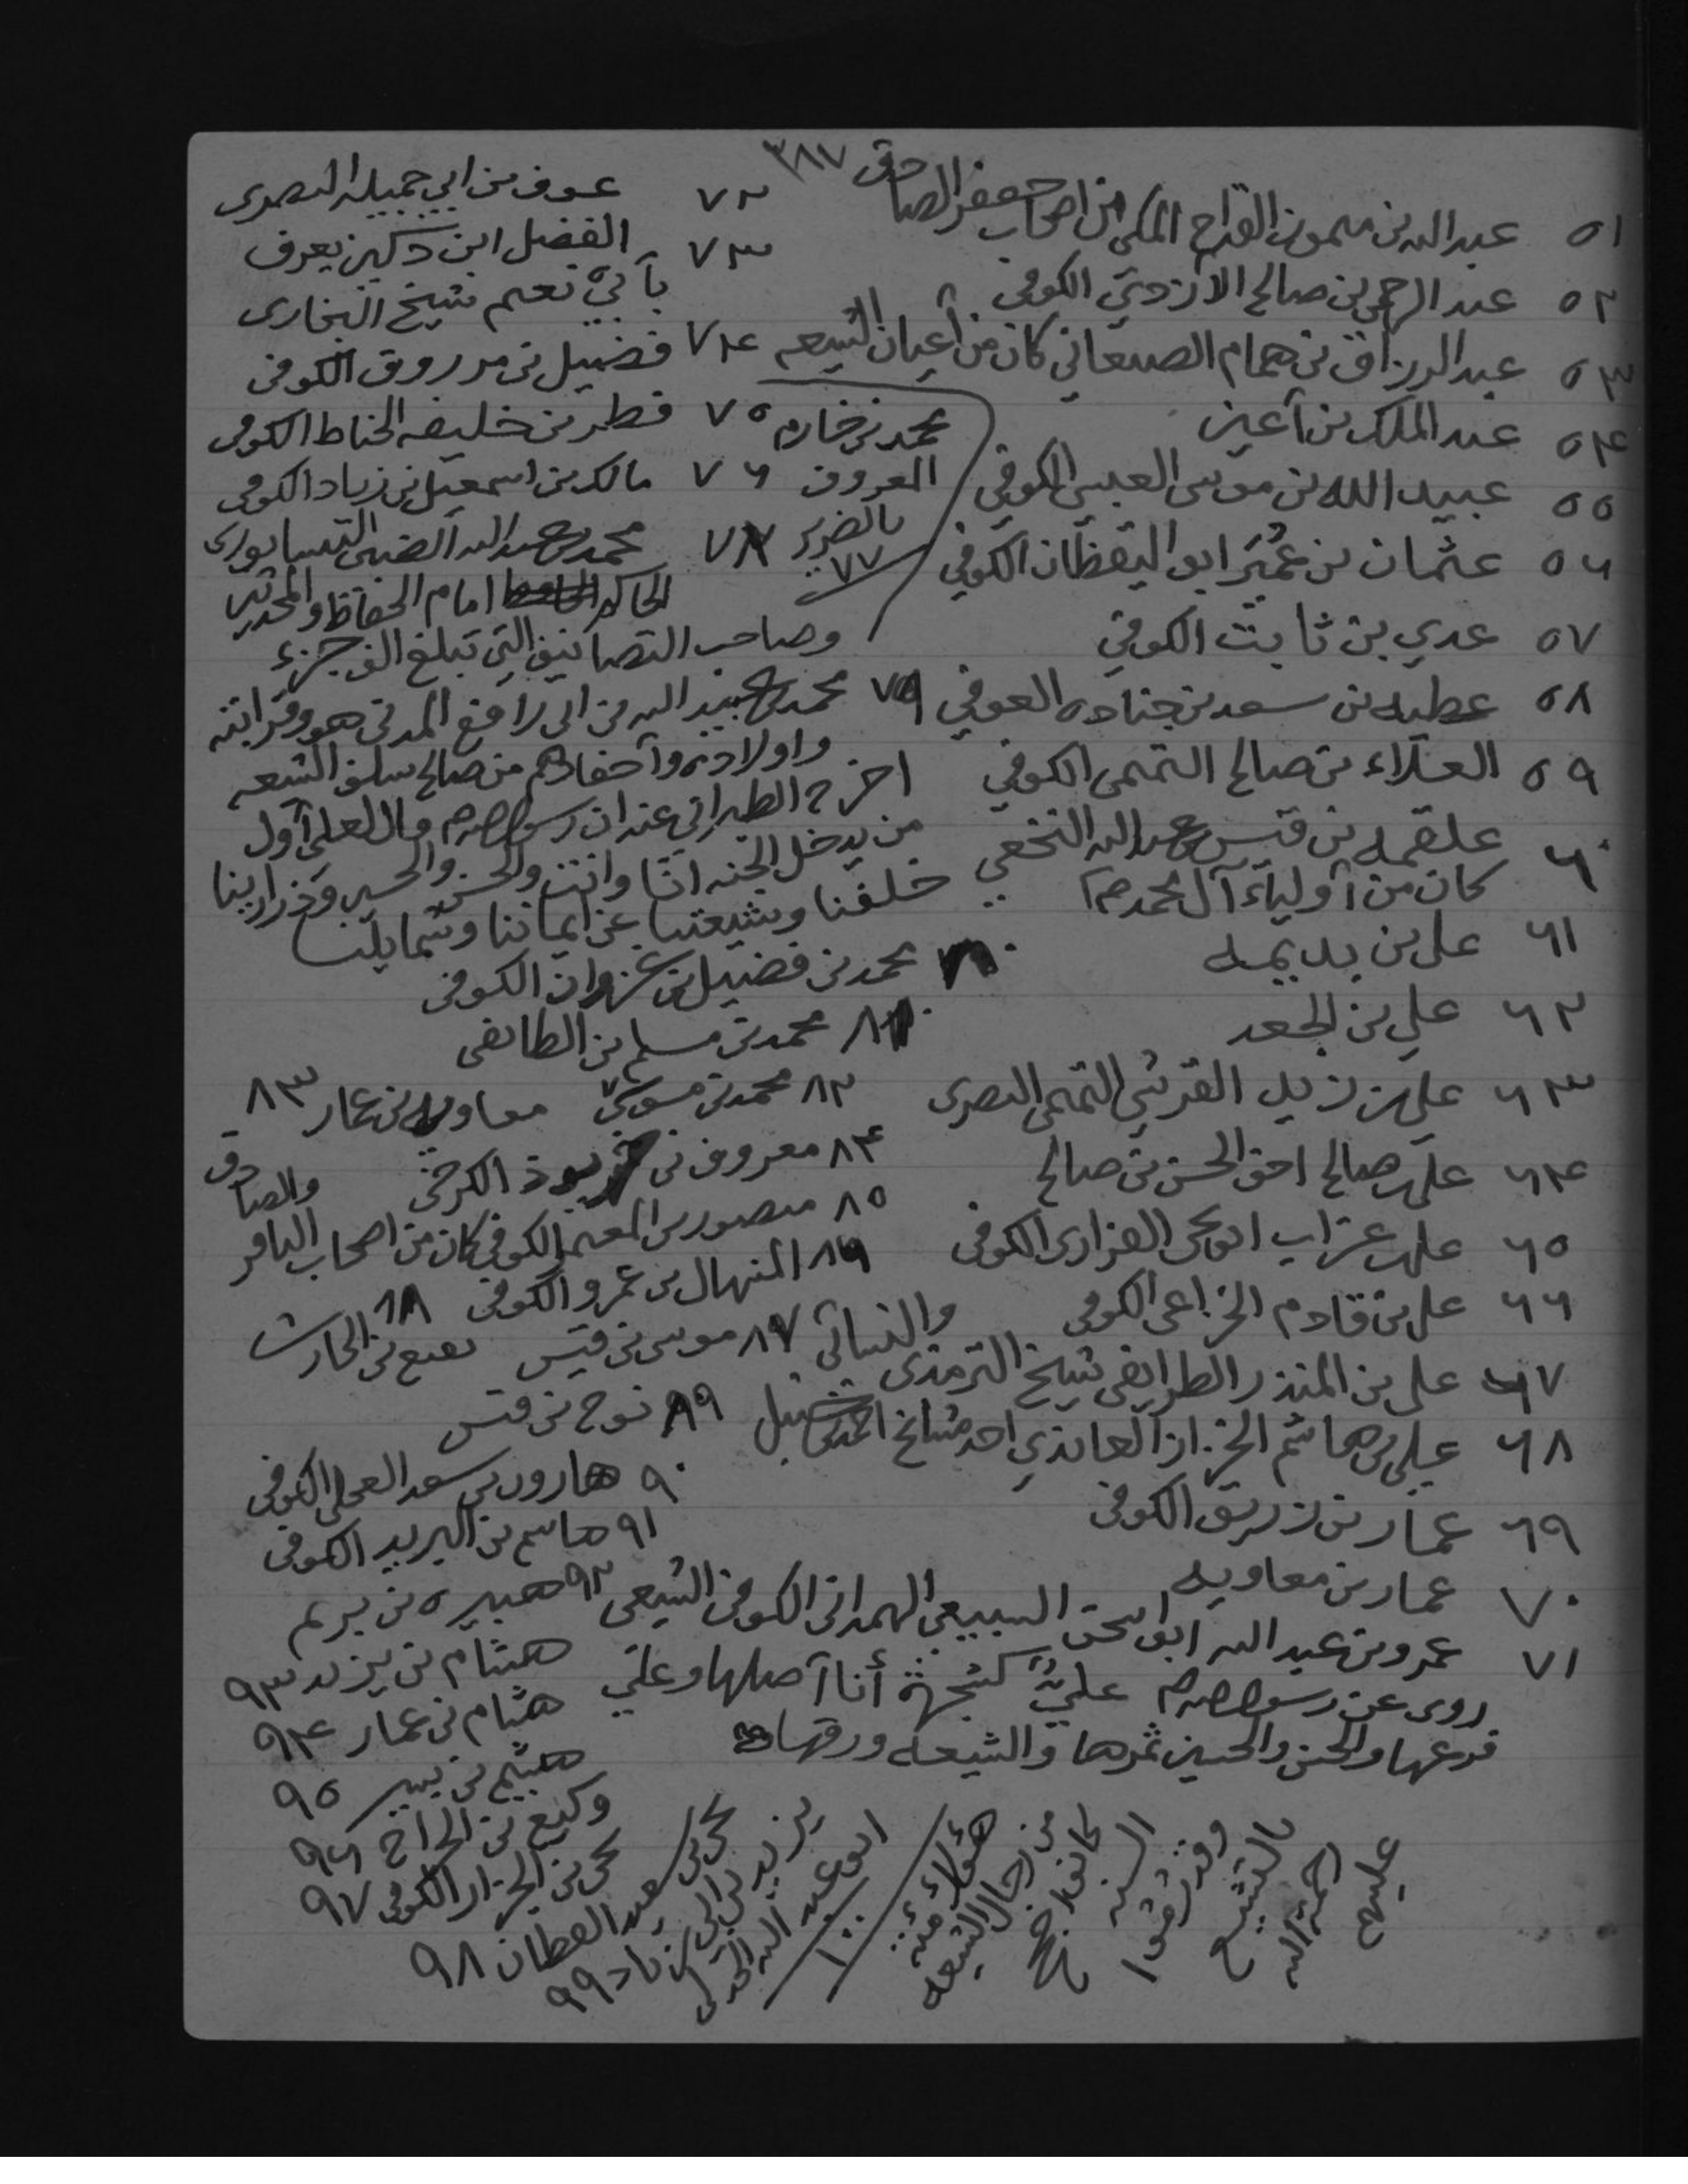 ٣٨٧
٥١ عبد الله بن ميمون القداح المكي من اصحاب جعفر الصادق
٥٢ عبد الرحمن بن صالح الأزدي الكوفي
٥٣ عبد الرزاق بن همام الصنعاني كان من أعيان الشيعه
٥٤ عبد الملك بن أعين
٥٥ عبيد الله بن موسى العبسي الكوفي
٥٦ عثمان بن عُمَير ابو اليقظان الكوفي
٥٧ عدي بن ثابت الكوفي
٥٨ عطيه بن سعد بن جناده العوفي
٥٩ العلاء بن صالح التيمي الكوفي
٦٠ علقمه بن قيس بن عبد الله النخعي
كان من أولياء آل محمد ص
٦١ علي بن بديمه
٦٢ علي بن الجعد
٦٣ علي بن زيد القرشي التيمي البصري
٦٤ علي بن صالح اخو الحسن بن صالح
٦٥ علي بن غراب ابو يحيى الفزاري الكوفي
٦٦ علي بن قادم الخزاعي الكوفي
٦٧ علي بن المنذر الطرايفي شيخ الترمذي والنسائي
٦٨ علي بن هاشم الخزاز العائذي احد مشايخ احمد بن حنبل
٦٩ عمار بن زريق الكوفي
٧٠ عمار بن معاويه
٧١ عمرو بن عبد الله ابو اسحق السبيعي الهمداني الكوفي الشيعي
روى عن رسول الله ص كشجرة أنا أصلها وعلي
فرعها والحسن والحسين ثمرها والشيعه ورقها
٧٢ عوف بن ابي جميله البصري
٧٣ الفضل ابن دكين يعرف
بأبي نعيم شيخ البخاري
٧٤ فضيل بن مرزوق الكوفي
٧٥ فطر بن خليفه الحناط الكوفي
٧٦ مالك بن اسمعيل بن زياد الكوفي
محمد بن خازم
المعروف
بالضرير
٧٧
٧٨ محمد بن عبد الله الضبي النيسابوري
الحاكم امام الحفاظ والمحدثين
وصاحب التصانيف التي تبلغ الف جزء
٧٩ محمد بن عبيد الله بن ابي رافع المدني هو وقرابته
واولاده وأحفادهم من صالح سلف الشيعه
اخرج الطبراني عنه ان رسول الله ص قال لعلي أول
من يدخل الجنه انا وانت والحسن والحسين وذرارينا
خلفنا وشيعتنا عن ايماننا وشمايلنا
٨٠ محمد بن فضيل بن غزوان الكوفي
٨١ محمد بن مسلم بن الطائفي
٨٢ محمد بن موسى
معاويه بن عمار ٨٣
٨٤ معروف بن خربوذ الكرخي
٨٥ منصور بن المعتمر الكوفي كان من اصحاب الباقر والصادق
٨٦ المنهال بن عمرو الكوفي
٨٧ موسى بن قيس
٨٨ نفيع بن الحارث
٨٩ نوح بن قيس
٩٠ هارون بن سعد العجلي الكوفي
٩١ هاشم بن البريد الكوفي
٩٢ هبيره بن بريم
هشام بن يزيد ٩٣
هشام بن عمار ٩٤
هشيم بن بشير ٩٥
وكيع بن الجراح ٩٦
يحيى بن الجزار الكوفي ٩٧
يحيى بن سعيد القطان ٩٨
يزيد بن ابي زياد ٩٩
ابو عبد الله الجدلي
١٠٠
هؤلاء مئة
من رجال الشيعه
السنه
بالتشيع
رحمة الله
عليهم